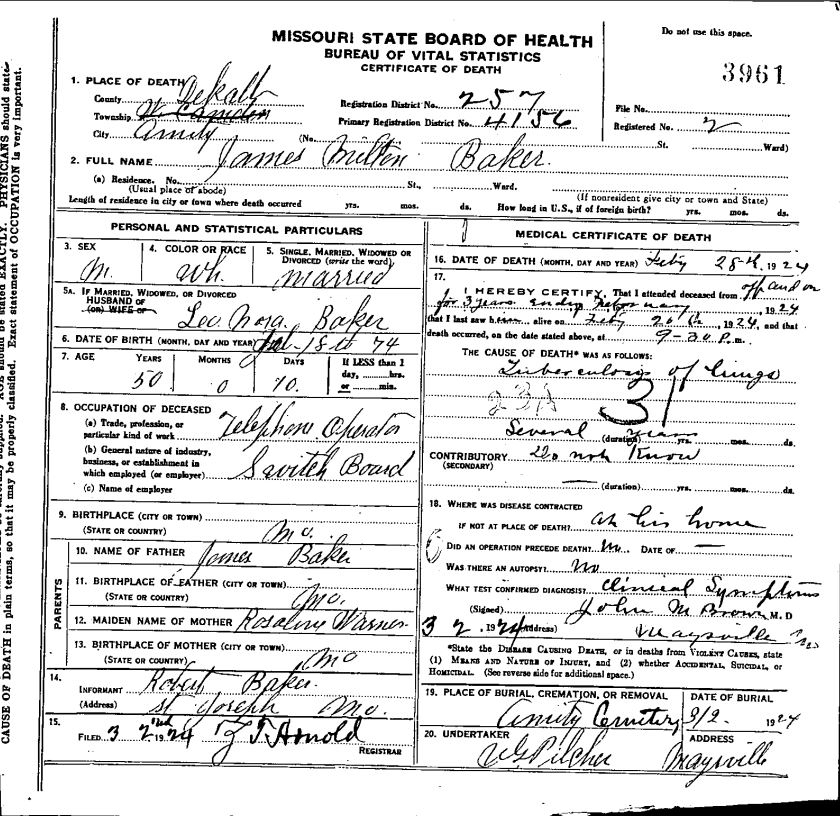 MISSOURI STATE BOARD OF HEALTH
BUREAU OF VITAL STATISTICS
CERTIFICATE OF DEATH
Do not use this space.
3961
1. PLACE OF DEATH
County Dekalb
Township W. Camden
City Amity (No. St. Ward)
Registration District No. 257
Primary Registration District No. 4156
File No.
Registered No. 2
2. FULL NAME James Milton Baker.
(a) Residence. No. St., Ward.
(Usual place of abode) (If nonresident give city or town and State)
Length of residence in city or town where death occurred yrs. mos. ds. How long in U.S., if of foreign birth? yrs. mos. ds.
PERSONAL AND STATISTICAL PARTICULARS
3. SEX M.
4. COLOR OR RACE Wh.
5. SINGLE, MARRIED, WIDOWED OR DIVORCED (write the word) married
5A. IF MARRIED, WIDOWED, OR DIVORCED
HUSBAND OF
(OR) WIFE OF Leo Nora Baker
6. DATE OF BIRTH (MONTH, DAY AND YEAR) 18th 74
7. AGE YEARS 50 MONTHS 0 DAYS 10. If LESS than 1 day, hrs. or min.
8. OCCUPATION OF DECEASED
(a) Trade, profession, or particular kind of work Telephone Operator
(b) General nature of industry, business, or establishment in which employed (or employer) Switch Board
(c) Name of employer
9. BIRTHPLACE (CITY OR TOWN)
(STATE OR COUNTRY) Mo.
PARENTS
10. NAME OF FATHER James Baker
11. BIRTHPLACE OF FATHER (CITY OR TOWN)
(STATE OR COUNTRY) Mo.
12. MAIDEN NAME OF MOTHER Warner
13. BIRTHPLACE OF MOTHER (CITY OR TOWN)
(STATE OR COUNTRY) Mo
14. INFORMANT Robert Baker.
(Address) St Joseph Mo.
15. FILED 3 2nd 1924 Arnold
REGISTRAR
MEDICAL CERTIFICATE OF DEATH
16. DATE OF DEATH (MONTH, DAY AND YEAR) Feby 28th, 1924
17. I HEREBY CERTIFY, That I attended deceased from off and on
for 3 years ending February, 1924
that I last saw h alive on Feby, 1924, and that
death occurred, on the date stated above, at 9-30 P.m.
THE CAUSE OF DEATH* WAS AS FOLLOWS:
Tuberculosis of lungs
23A 31
Several years (duration) yrs. mos. ds.
CONTRIBUTORY Do not Know
(SECONDARY)
(duration) yrs. mos. ds.
18. WHERE WAS DISEASE CONTRACTED
IF NOT AT PLACE OF DEATH? at his home
DID AN OPERATION PRECEDE DEATH? No. DATE OF —
WAS THERE AN AUTOPSY? No
WHAT TEST CONFIRMED DIAGNOSIS? Clinical Symptoms
(Signed) John M Brown, M. D
3 2, 1924 (Address) Maysville Mo
*State the DISEASE CAUSING DEATH, or in deaths from VIOLENT CAUSES, state
(1) MEANS AND NATURE OF INJURY, and (2) whether ACCIDENTAL, SUICIDAL, or
HOMICIDAL. (See reverse side for additional space.)
19. PLACE OF BURIAL, CREMATION, OR REMOVAL Amity Cemetery
DATE OF BURIAL 3/2- 1924
20. UNDERTAKER Pilcher
ADDRESS Maysville
CAUSE OF DEATH in plain terms, so that it may be properly classified. Exact statement of OCCUPATION is very important.
stated EXACTLY. PHYSICIANS should state